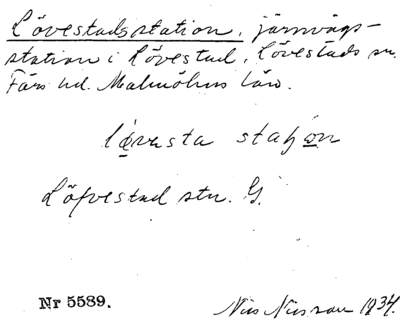 Lövestads station, järnvägs-
station i Lövestad, Lövestads sn.
Färs hd. Malmöhus län.
lövesta station
Löfvestad stn. G.
Nr 5589.
Nils Nilsson 1934.